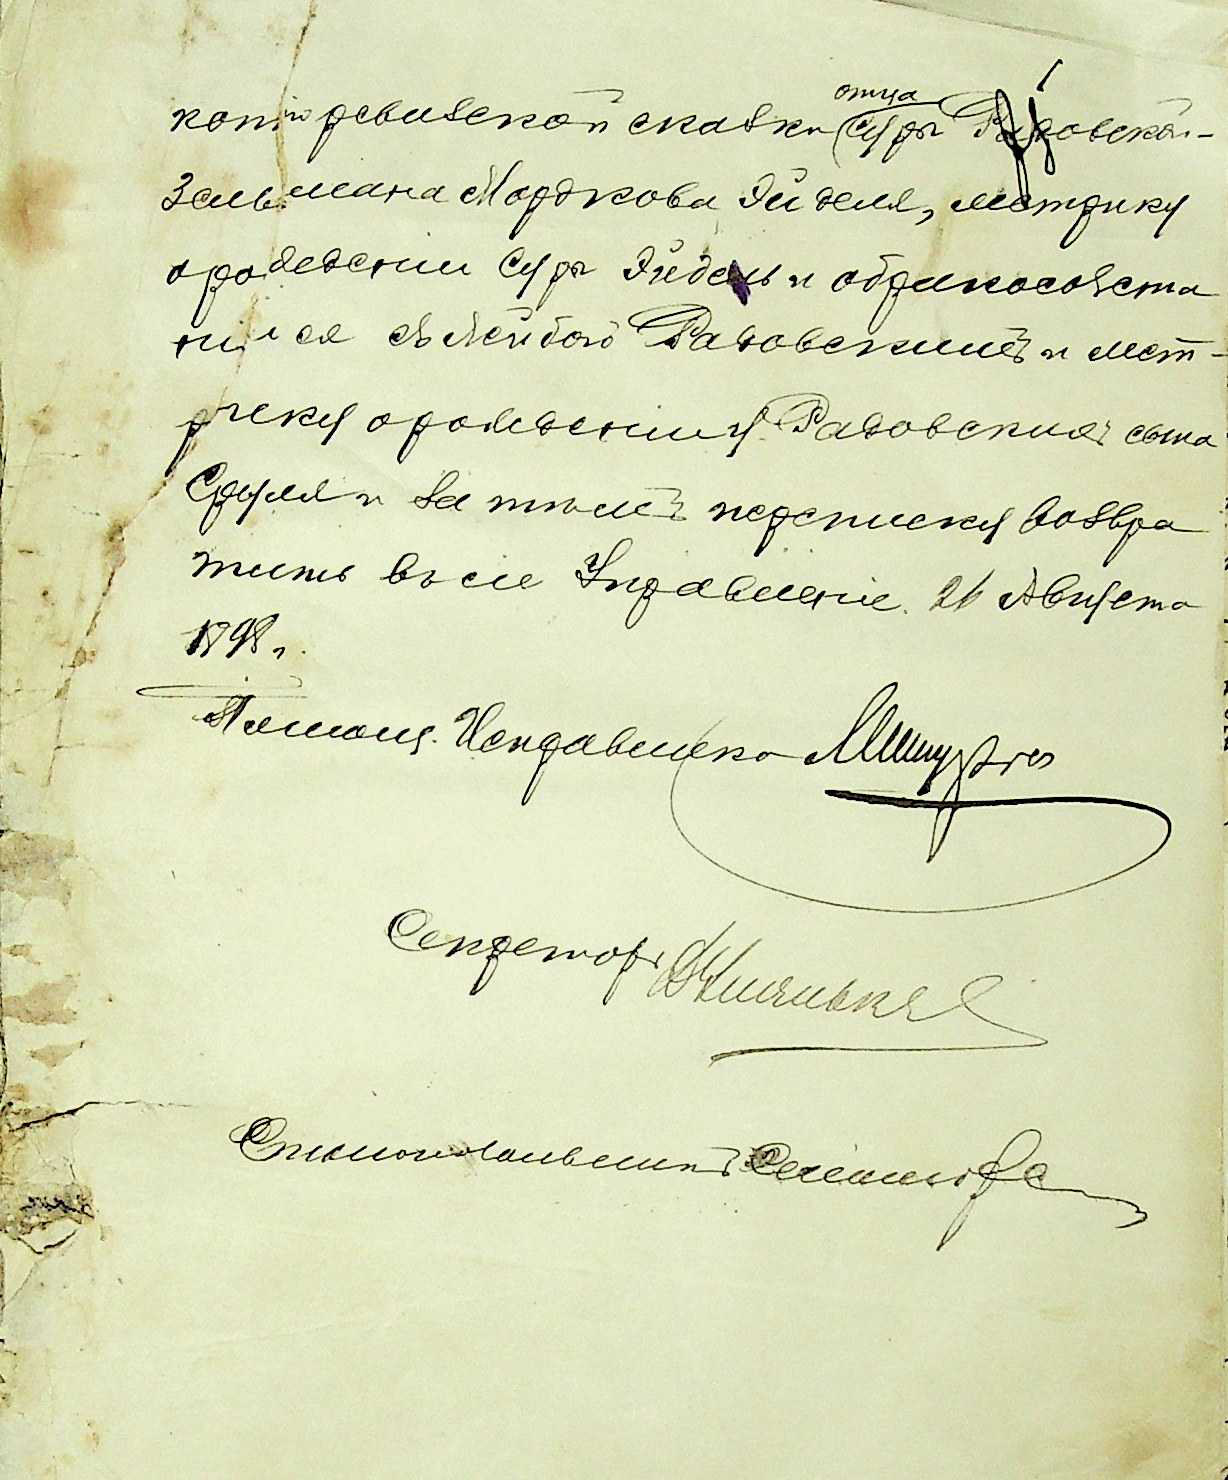 отца
копiю ревизской сказки Суры Радовской
Зельмана Мордкова Эйделя, метрику
о рожденiи Суры Эйдель и о бракосочета
нiи ея съ Лейбою Радовскимъ и мет-
рику о рожденiи у Радовскихъ сына
Сруля и за тѣмъ переписку возвра
тить въ сіе Управленіе. 21 Августа
1898 г.
Помощ. Исправника
Секретарь
Столоначальникъ